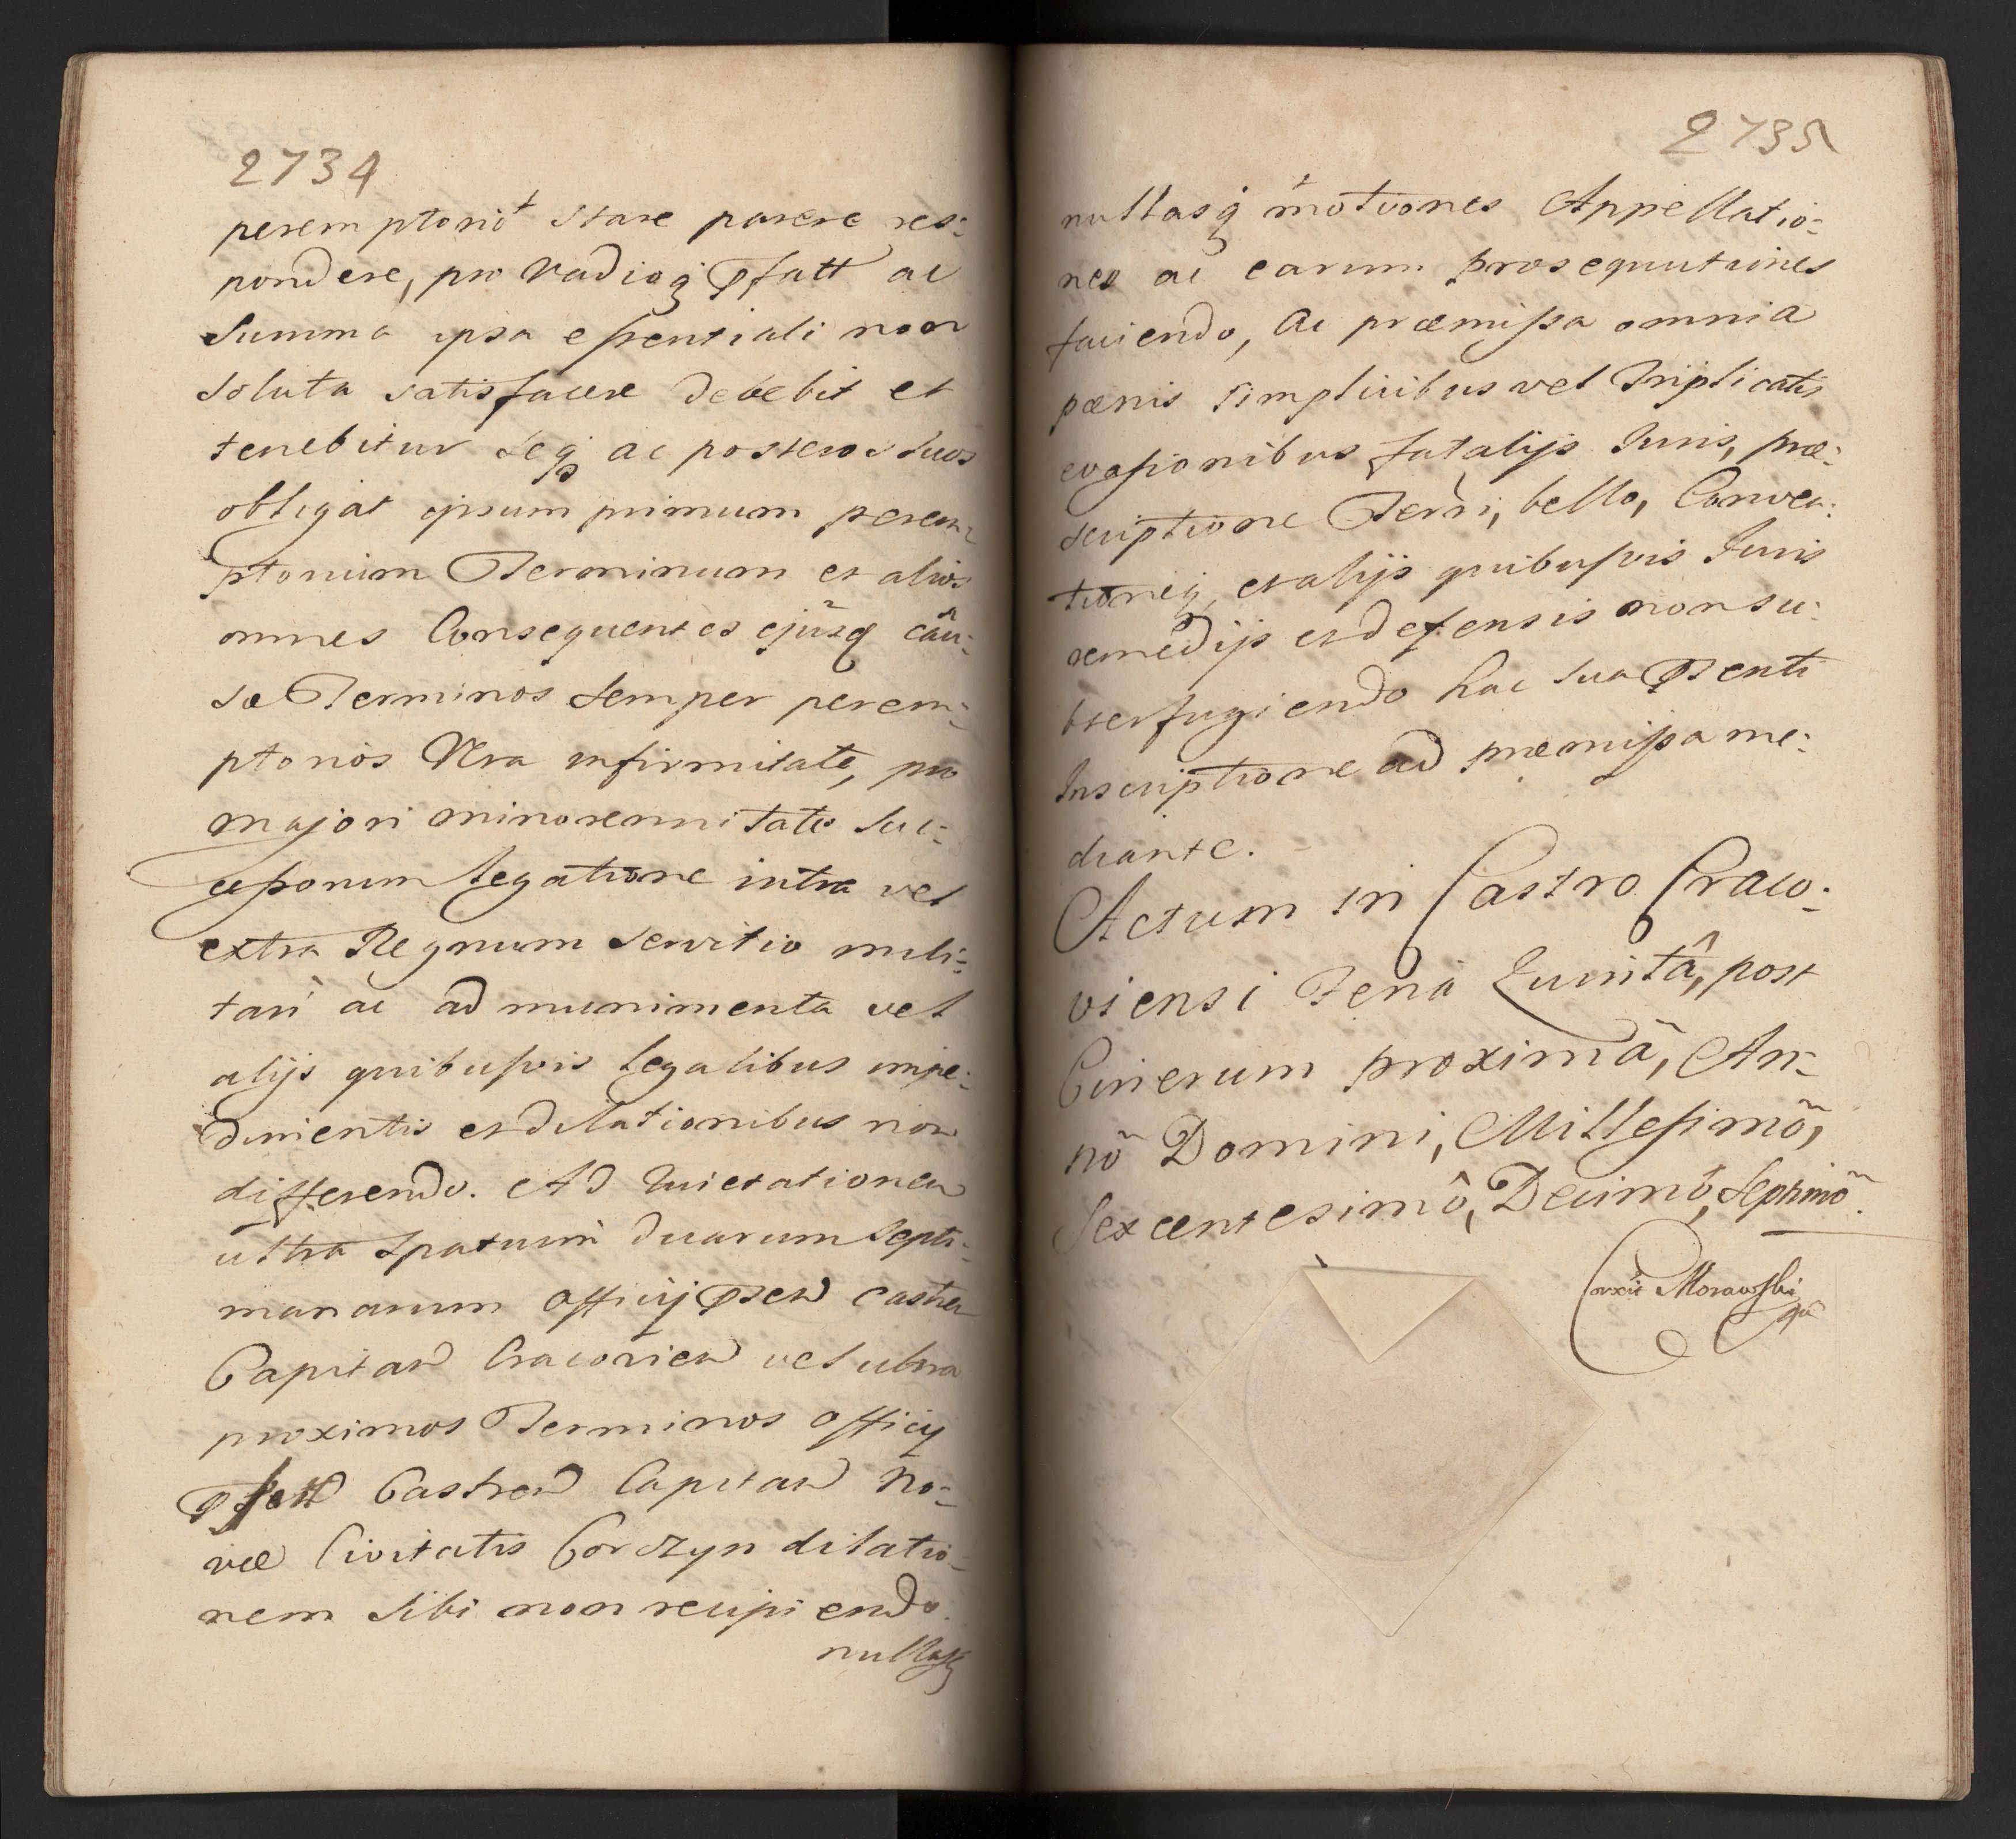 2734
peremptorie stare parere res:
pondere, pro Vadioq Pfatt ac
Summa ipsa essentiali non
soluta satisfacere debebit et
tenebitur seq ac posteros suos
obligat ipsum primum perem:
ptorium Terminum et alios
omnes Consequentes ejusq cau:
sæ Terminos semper perem:
ptorios Vera infirmitate, pro
majori minorennitate suc:
cessorum legatione intra vel
extra Regnum servitio mili:
tari ac ad munimenta vel
alijs quibusvis legalibus impe:
dimentis et dilationibus non
differendo. Ad Quietationem
ultra spatium duarum septi:
manarum officij Psen Castren
Capitan Cracovien vel ultra
proximos Terminos officij
Pfatt Castren Capitan No:
væ Civitatis Corczyn dilatio:
nem sibi non recipiendo.
nullasq
2735
nullasq motiones Appellatio:
nes ac earum prosequutiones
faciendo, Ac præmissa omnia
pœnis simplicibus vel Triplicatis
evasionibus fatalijs Iuris, præ:
scriptione Terri, bello, Conven:
tioneq, et alijs quibusvis Iuris
remedijs et defensis non su:
bterfugiendo hac sua Psenti
Inscriptione ad præmissa me:
diante.
Actum in Castro Craco:
viensi Feria Quintâ, post
Cinerum proximâ, An:
nô Domini, Millesimô,
Sexcentesimô, Decimô, Septimô.
Corxit Morawski